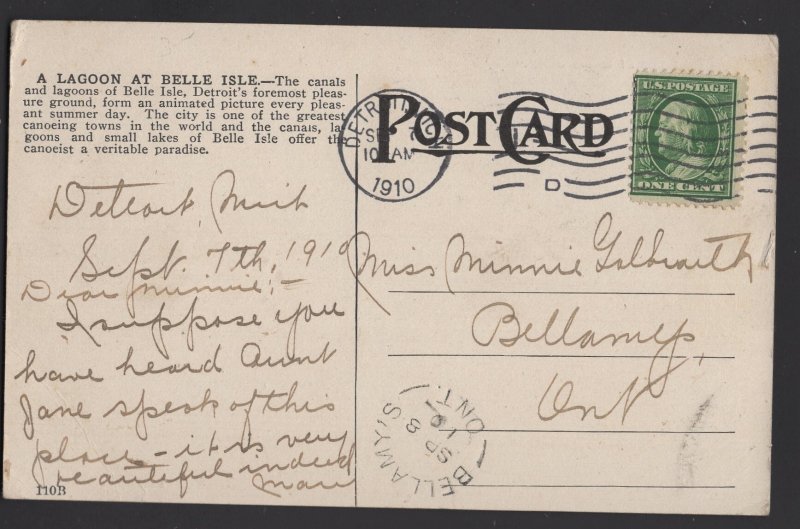 A LAGOON AT BELLE ISLE.—The canals
and lagoons of Belle Isle, Detroit's foremost pleas-
ure ground, form an animated picture every pleas-
ant summer day. The city is one of the greatest
canoeing towns in the world and the canals, la-
goons and small lakes of Belle Isle offer the
canoeist a veritable paradise.
POST CARD
DETROIT, MICH
SEP 7
10 AM
1910
D
U.S. POSTAGE
ONE CENT
Detroit, Mich
Sept. 7th, 1910
Dear Minnie;-
I suppose you
have heard Aunt
Jane speak of this
place - it is very
beautiful indeed
110B
Miss Minnie Galbraith
Bellamys,
Ont
BELLAMY'S
ONT.
SP 8
10